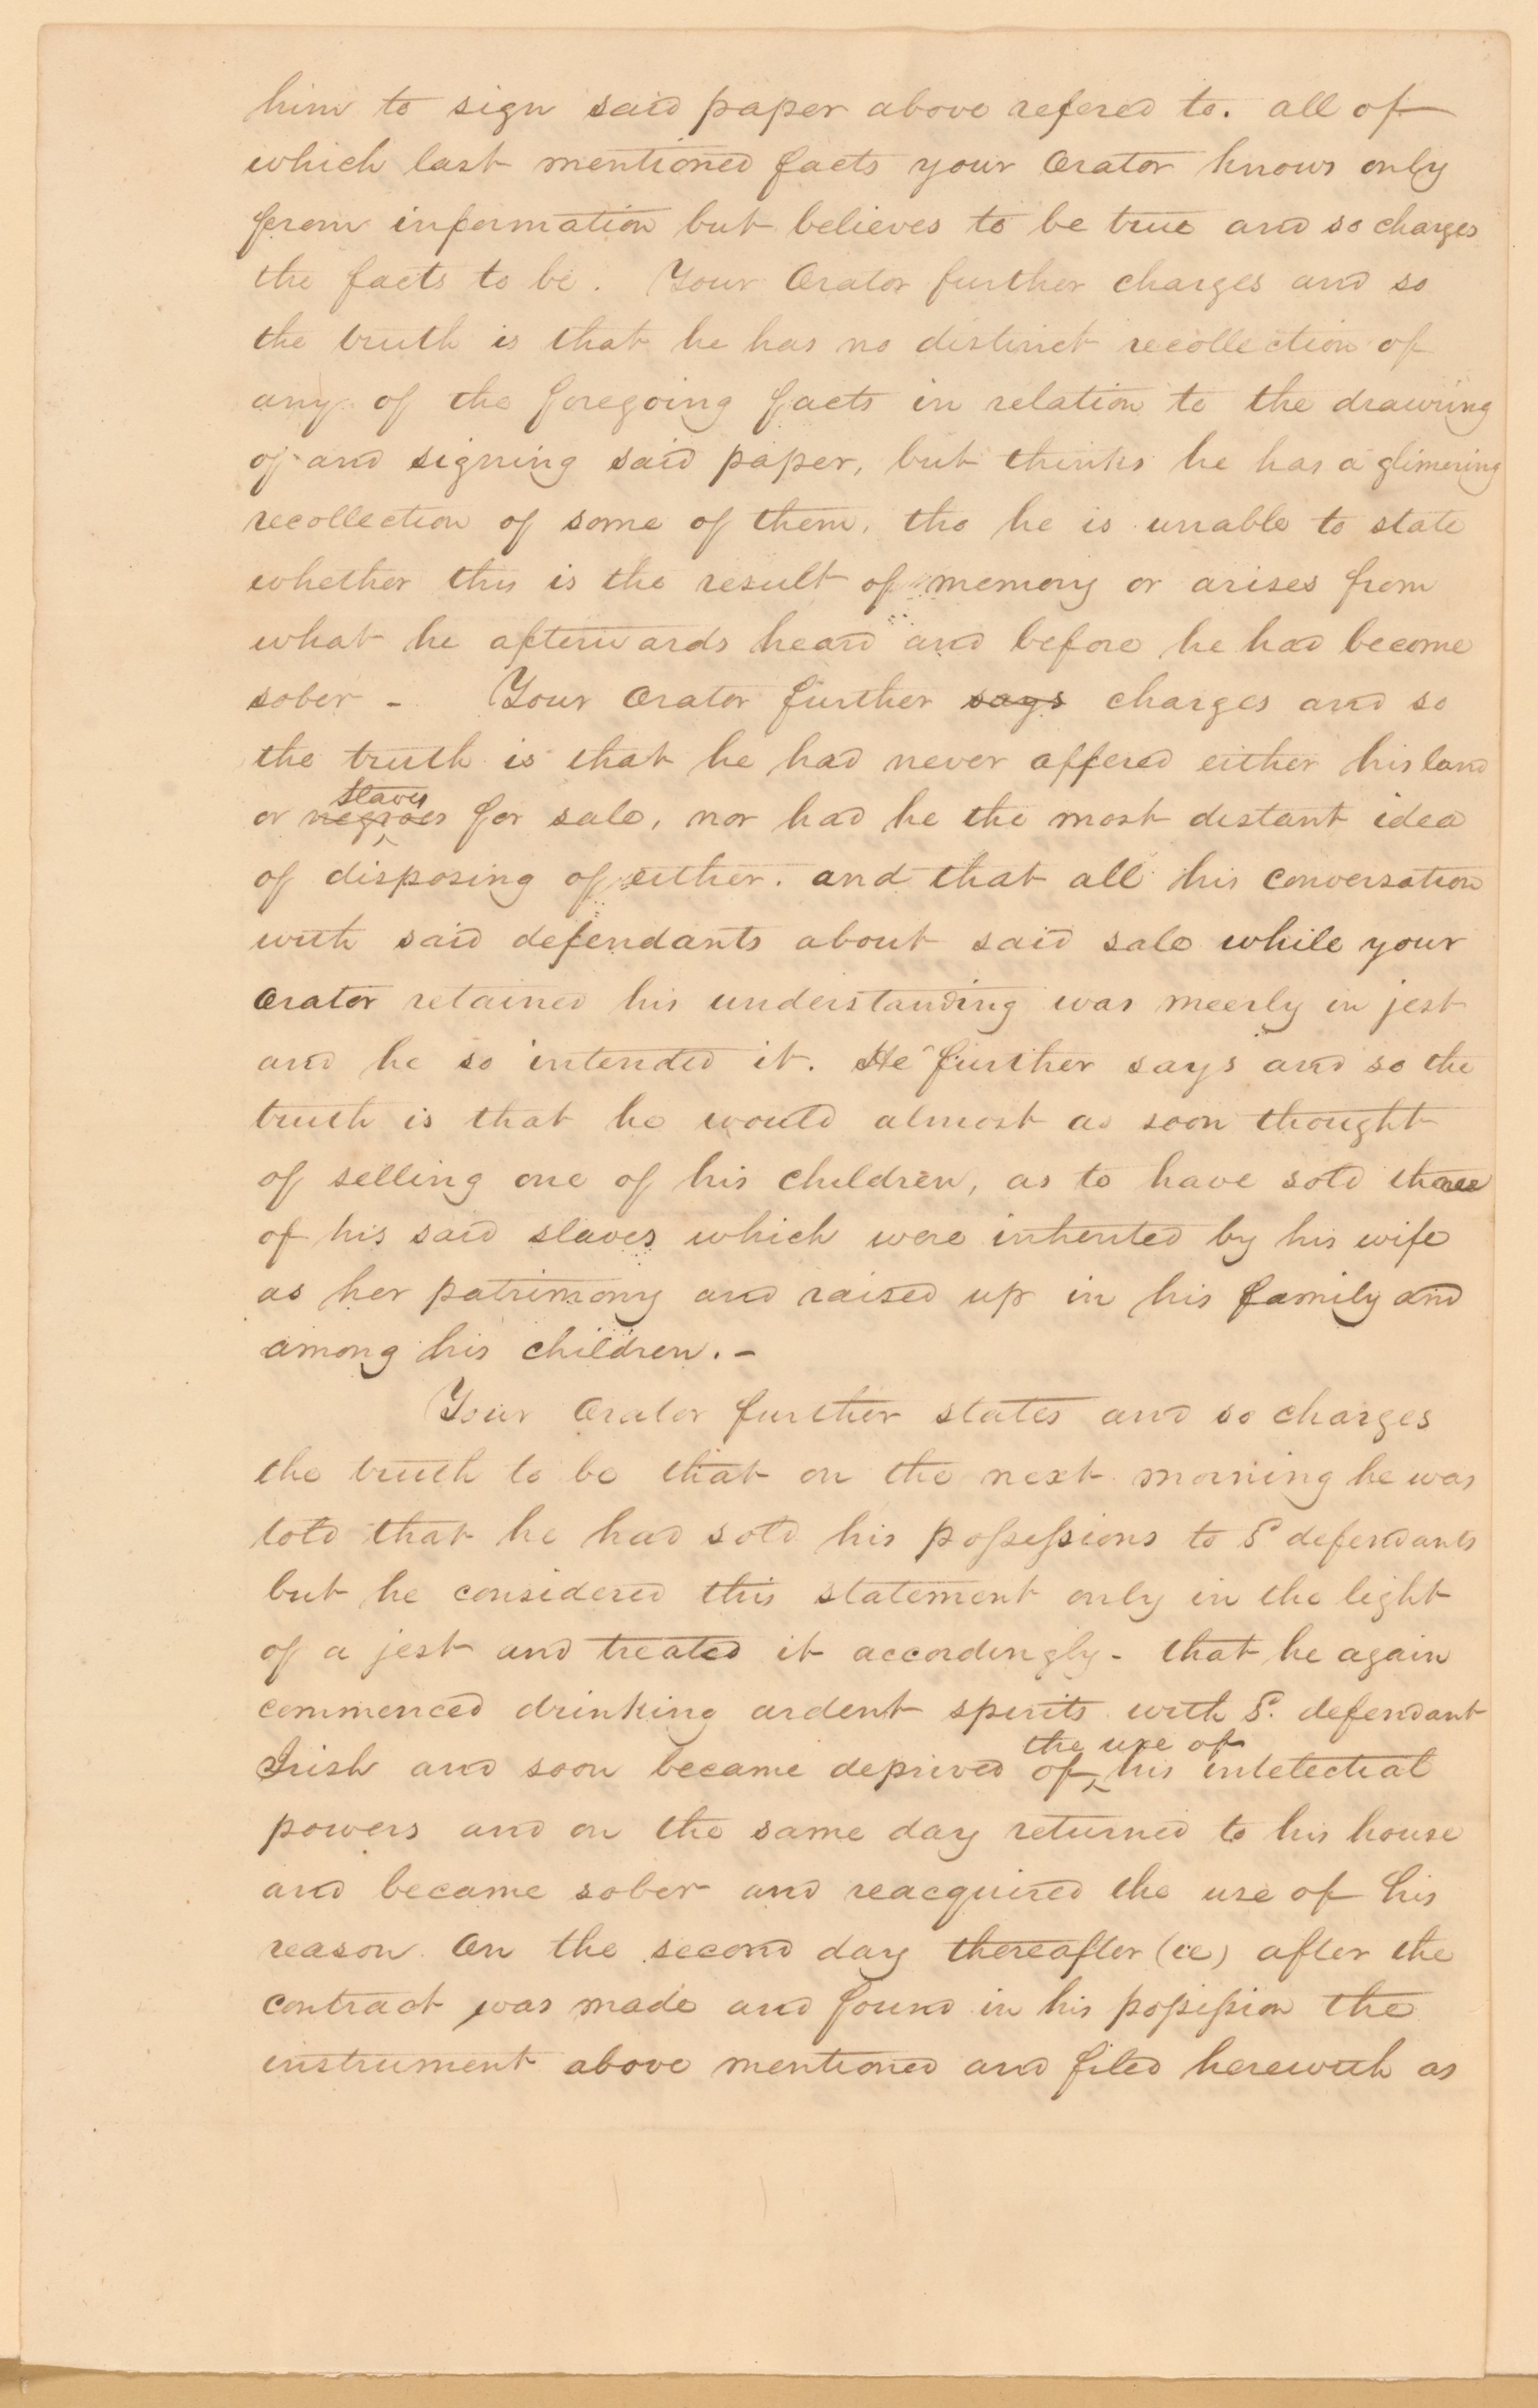 him to sign said paper above refered to. all of
which last mentioned facts your Orator knows only
from information but believes to be true and so charges
the facts to be. Your Orator further charges and so
the truth is that he has no distinct recollection of
any of the foregoing facts in relation to the drawing
of and signing said paper, but thinks he has a glimering
recollection of some of them, tho he is unable to state
whether this is the result of memory or arises from
what he afterwards heard and before he had become
sober - Your Orator further says charges and so
the truth is that he had never offered either his land
slaves
or negroes for sale, nor had he the most distant idea
of disposing of either. and that all his conversation
with said defendants about said sale while your
Orator retained his understanding was meerly in jest
and he so intended it. He further says and so the
truth is that he would almost as soon thought
of selling one of his children, as to have sold those
of his said slaves which were inherited by his wife
as her patrimony and raised up in his family and
among his children. -
Your Orator further states and so charges
the truth to be that on the next morning he was
told that he had sold his poſseſsions to Sd defendants
but he considered this statement only in the light
of a jest and treated it accordingly - that he again
commenced drinking ardent spirits with Sd. defendant
the use of
Irish and soon became deprived of his intelectial
powers and on the same day returned to his house
and became sober and reacquired the use of his
reason. On the second day thereafter (ie) after the
contract was made and found in his poſseſsion the
instrument above mentioned and filed herewith as